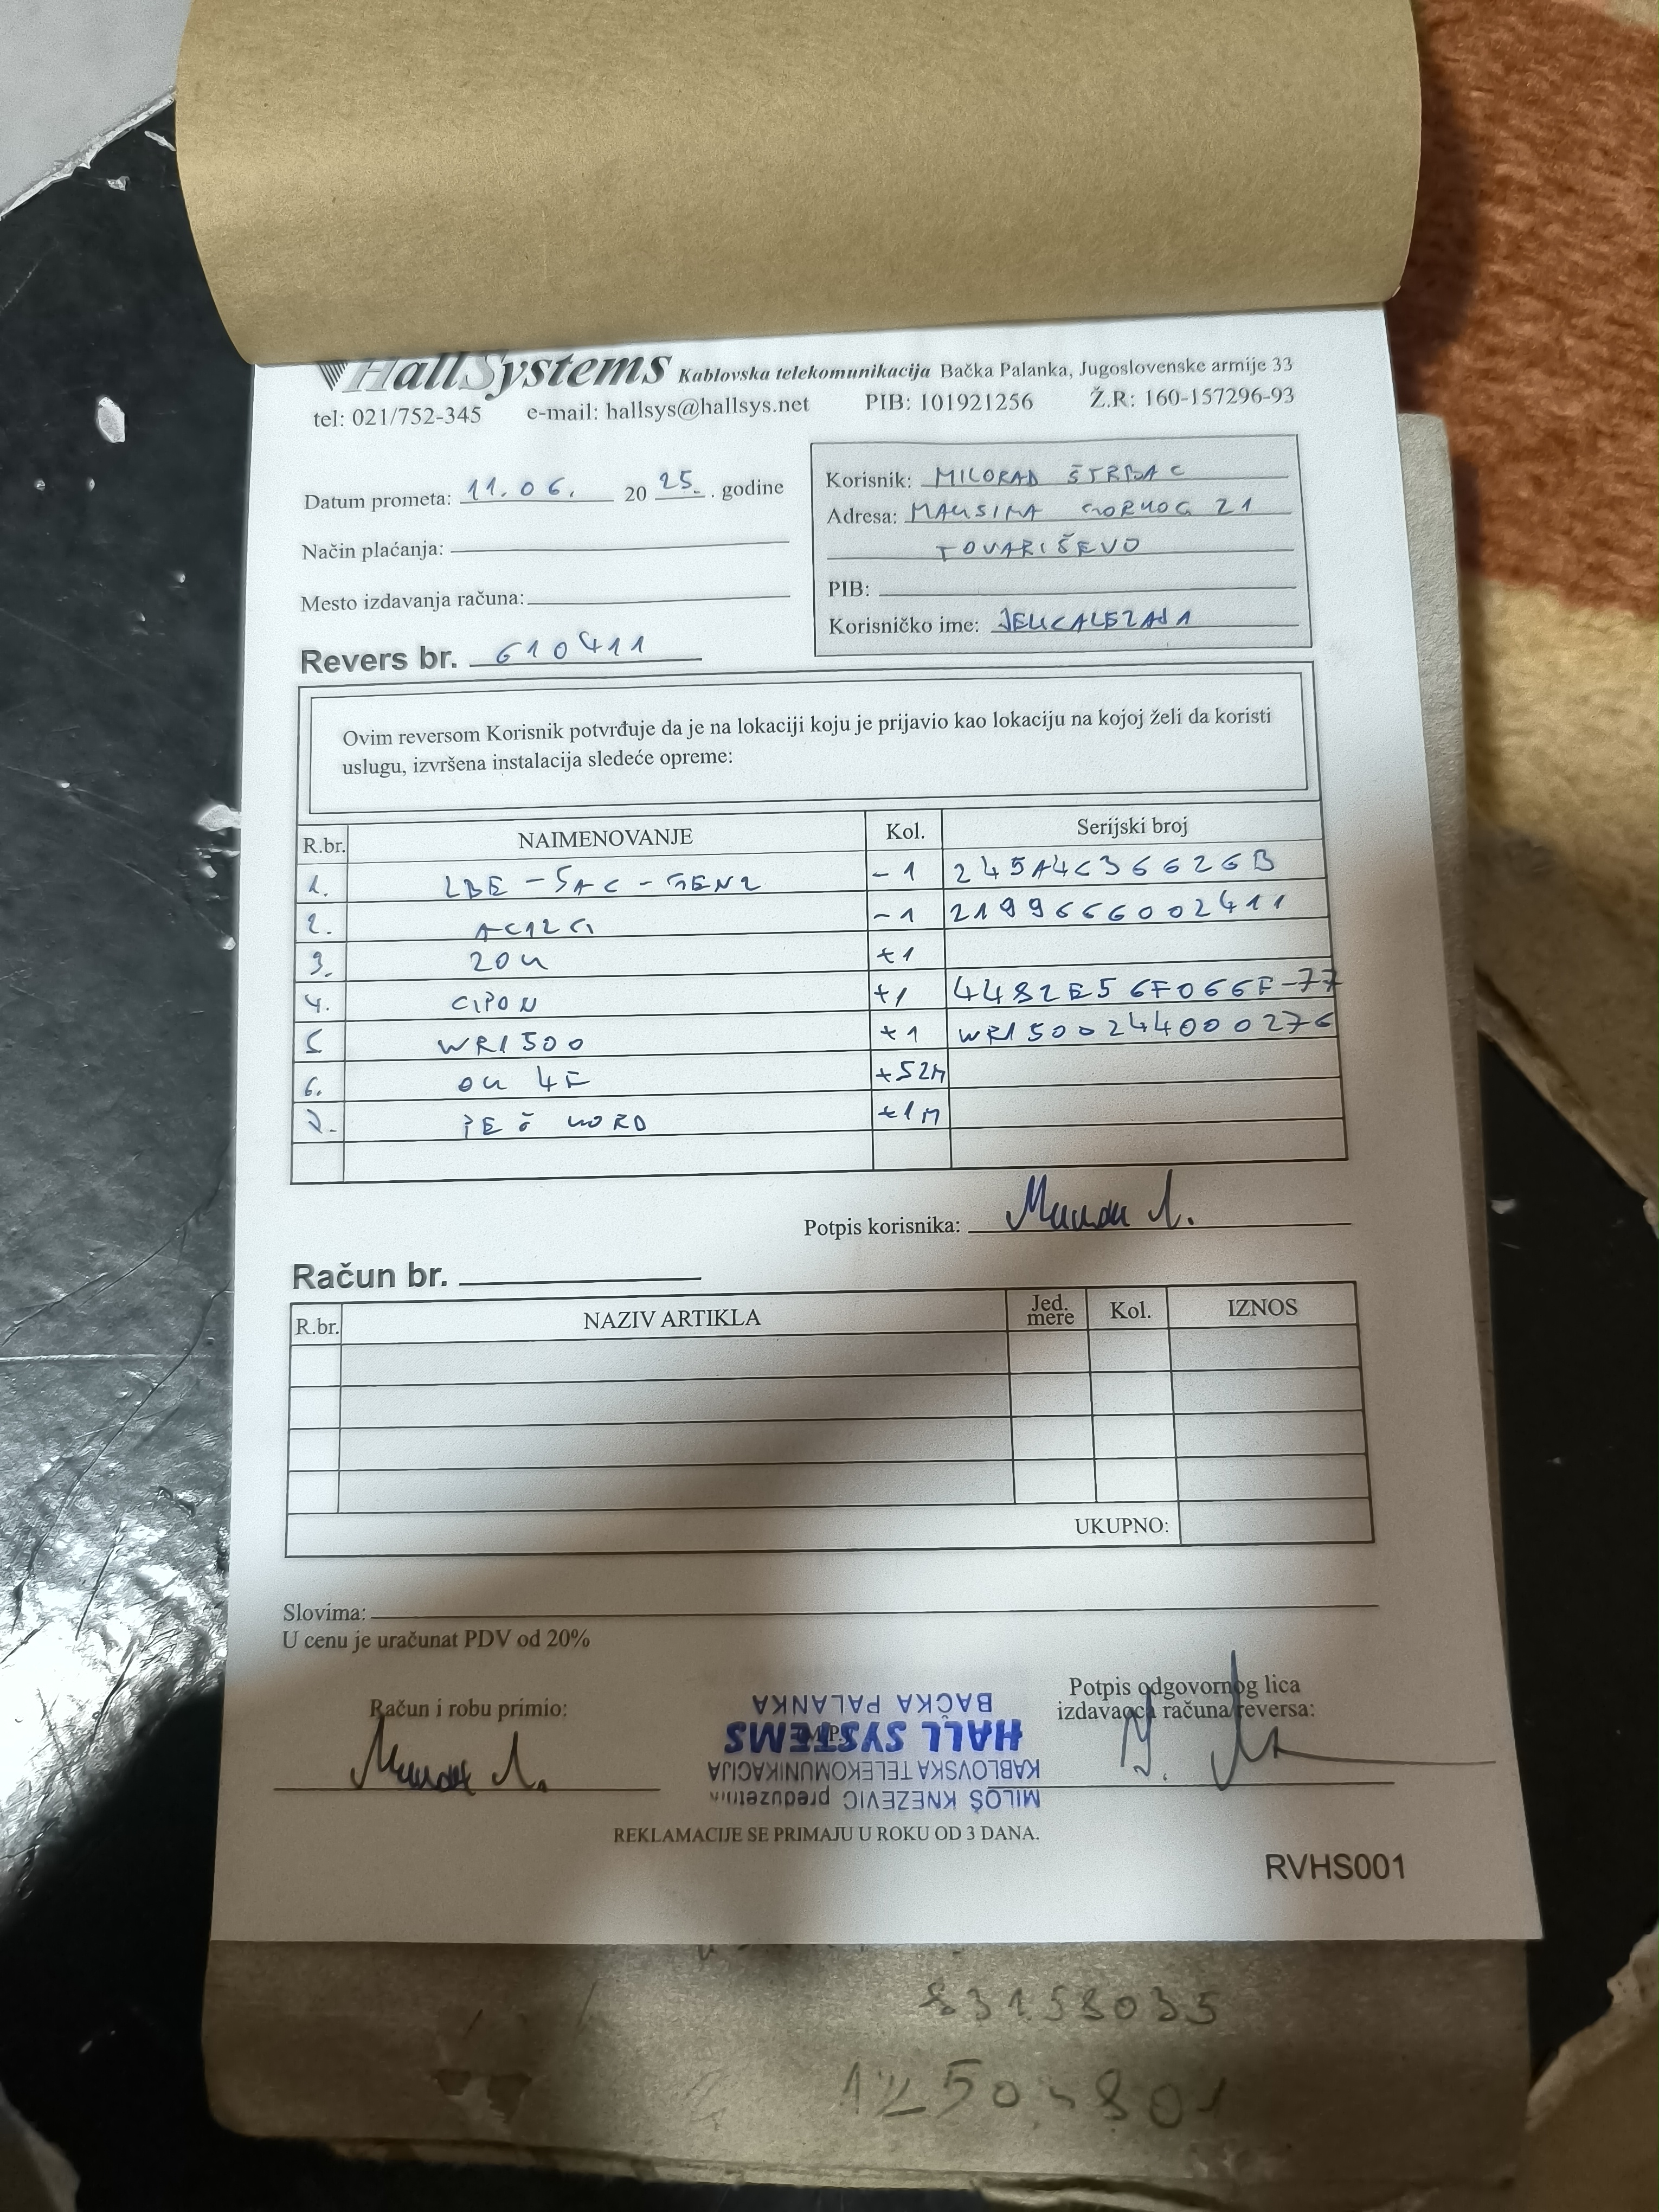 HallSystems Kablovska telekomunikacija Bačka Palanka, Jugoslovenske armije 33
tel: 021/752-345 e-mail: hallsys@hallsys.net PIB: 101921256 Ž.R: 160-157296-93
Datum prometa: 11.06. 20 25. . godine
Način plaćanja:
Mesto izdavanja računa:
Revers br. 610411
Korisnik: MILORAD ŠTRBAC
Adresa: MAKSIMA GORKOG 21
TOVARIŠEVO
PIB:
Korisničko ime:
Ovim reversom Korisnik potvrđuje da je na lokaciji koju je prijavio kao lokaciju na kojoj želi da koristi
uslugu, izvršena instalacija sledeće opreme:
R.br. NAIMENOVANJE Kol. Serijski broj
1. LBE-5AC-GEN2 -1 245A4C36626B
2. AC12G -1 2199666002411
3. ZOK +1
4. GPON +1 4482E56F066F-77
5 WR1500 +1 WR15002444000276
6. OK 4F +52M
7. +1M
Potpis korisnika:
Račun br.
R.br. NAZIV ARTIKLA Jed. mere Kol. IZNOS
UKUPNO:
Slovima:
U cenu je uračunat PDV od 20%
Račun i robu primio:
M.P.
Potpis odgovornog lica
izdavaoca računa/reversa:
MILOŠ KNEZEVIC preduzetnik
KABLOVSKA TELEKOMUNIKACIJA
HALL SYSTEMS
BAČKA PALANKA
REKLAMACIJE SE PRIMAJU U ROKU OD 3 DANA.
RVHS001
83158035